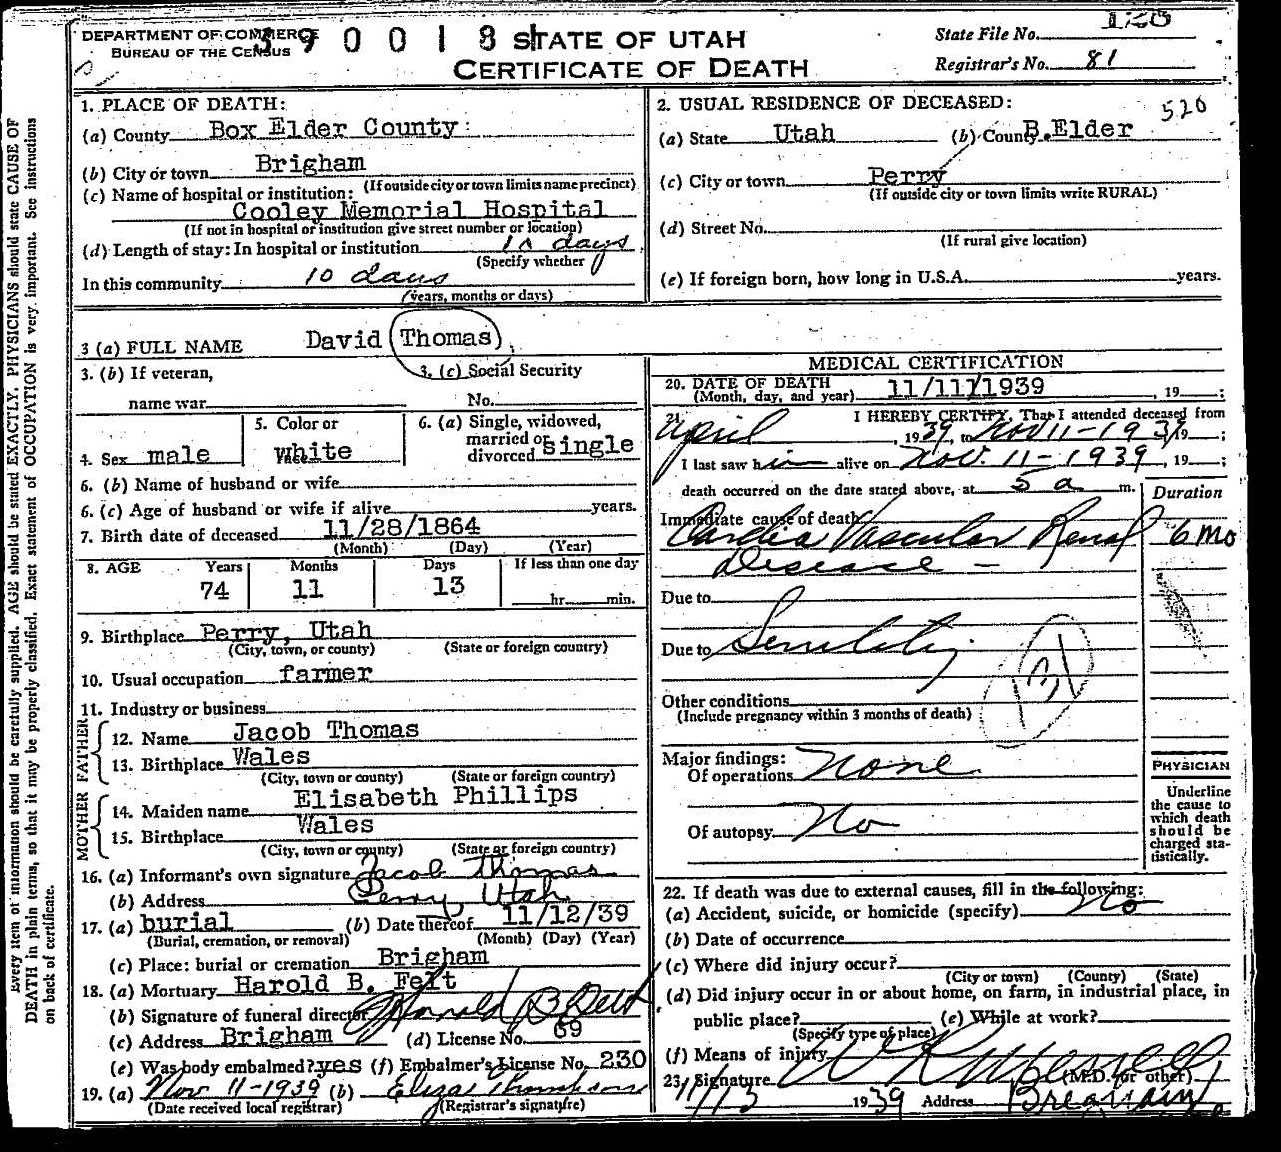 DEPARTMENT OF COMMERCE
BUREAU OF THE CENSUS
390018
STATE OF UTAH
CERTIFICATE OF DEATH
State File No. 128
Registrar's No. 81
Every item of information should be carefully supplied. AGE should be stated EXACTLY. PHYSICIANS should state CAUSE OF
DEATH in plain terms, so that it may be properly classified. Exact statement of OCCUPATION is very important. See instructions
on back of certificate.
1. PLACE OF DEATH:
(a) County Box Elder County
(b) City or town Brigham
(If outside city or town limits name precinct)
(c) Name of hospital or institution:
Cooley Memorial Hospital
(If not in hospital or institution give street number or location)
(d) Length of stay: In hospital or institution 10 days
(Specify whether
In this community 10 days
(years, months or days)
2. USUAL RESIDENCE OF DECEASED:
520
(a) State Utah (b) County B.Elder
(c) City or town Perry
(If outside city or town limits write RURAL)
(d) Street No.
(If rural give location)
(e) If foreign born, how long in U.S.A. years.
3 (a) FULL NAME David Thomas
3. (b) If veteran,
name war
3. (c) Social Security
No.
4. Sex male
5. Color or
Race white
6. (a) Single, widowed,
married or
divorced single
6. (b) Name of husband or wife
6. (c) Age of husband or wife if alive years.
7. Birth date of deceased 11/28/1864
(Month) (Day) (Year)
8. AGE Years Months Days If less than one day
74 11 13 hr. min.
9. Birthplace Perry, Utah
(City, town, or county) (State or foreign country)
10. Usual occupation farmer
11. Industry or business
FATHER
12. Name Jacob Thomas
13. Birthplace Wales
(City, town or county) (State or foreign country)
MOTHER
14. Maiden name Elisabeth Phillips
15. Birthplace Wales
(City, town or county) (State or foreign country)
16. (a) Informant's own signature Jacob Thomas
(b) Address Perry Utah
17. (a) burial (b) Date thereof 11/12/39
(Burial, cremation, or removal) (Month) (Day) (Year)
(c) Place: burial or cremation Brigham
18. (a) Mortuary Harold B. Felt
(b) Signature of funeral director Harold B Felt
(c) Address Brigham (d) License No. 69
(e) Was body embalmed? yes (f) Embalmer's License No. 230
19. (a) Nov 11-1939 (b) Eliza Thompson
(Date received local registrar) (Registrar's signature)
MEDICAL CERTIFICATION
20. DATE OF DEATH 11/11/1939 , 19 ;
(Month, day, and year)
21. I HEREBY CERTIFY, That I attended deceased from
April , 1939, to Nov 11-1939 19 ;
I last saw him alive on Nov. 11-1939, 19 ;
death occurred on the date stated above, at 5 a m.
Duration
Immediate cause of death
Cardio Vascular Renal 6 mo
Disease -
Due to
Due to Senility
Other conditions
(Include pregnancy within 3 months of death)
Major findings:
Of operations None
Of autopsy No
PHYSICIAN
Underline
the cause to
which death
should be
charged sta-
tistically.
22. If death was due to external causes, fill in the following:
(a) Accident, suicide, or homicide (specify) No
(b) Date of occurrence
(c) Where did injury occur?
(City or town) (County) (State)
(d) Did injury occur in or about home, on farm, in industrial place, in
public place? (e) While at work?
(Specify type of place)
(f) Means of injury
23. Signature (M.D. or other)
11/13 1939 Address Brigham